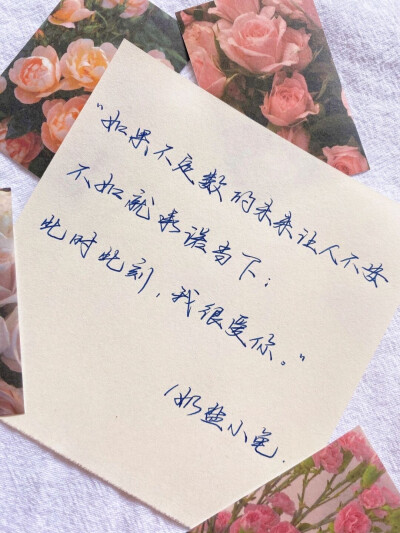 “如果不定数的未来让人不安
不如就承诺当下：
此时此刻，我很爱你。”
/奶盐小兔.